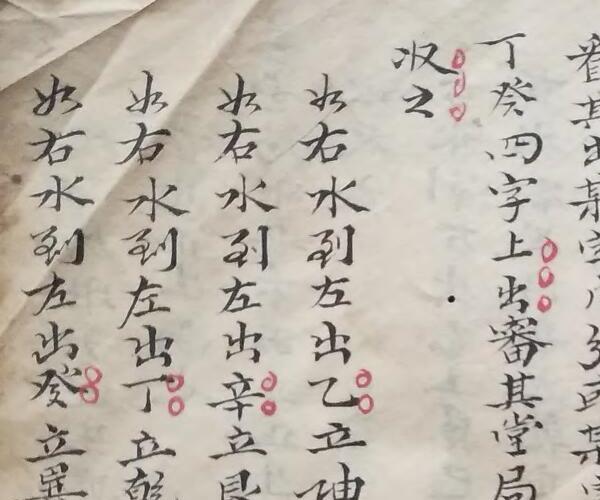 看其出某字
丁癸四字上出審其堂局
收之
如右水到左出乙立坤
如右水到左出辛立艮
如右水到左出丁立乾
如右水到左出癸立巽